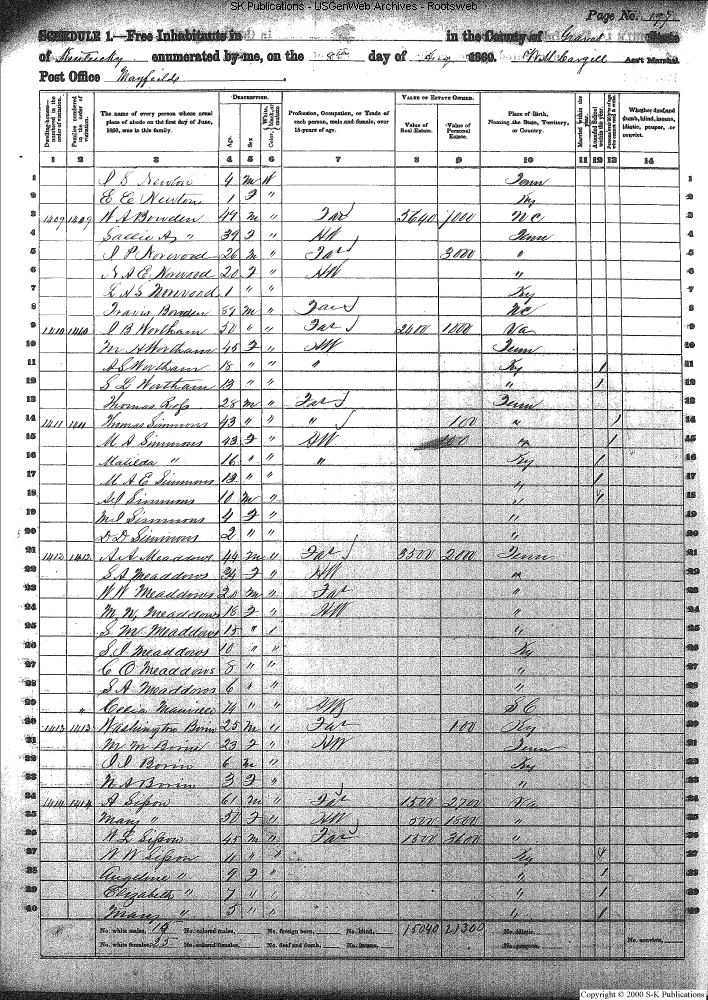 SK Publications - USGenWeb Archives - Rootsweb
Page No. 197
SCHEDULE 1.—Free Inhabitants in in the County of Graves State
of Kentucky enumerated by me, on the 8th day of Aug 1860. Ass't Marshal
Post Office Mayfield
Dwelling-houses—numbered in the order of visitation.
Families numbered in the order of visitation.
The name of every person whose usual place of abode on the first day of June, 1860, was in this family.
DESCRIPTION.
Age.
Sex
Color,
Profession, Occupation, or Trade of each person, male and female, over 15 years of age.
VALUE OF ESTATE OWNED.
Value of Real Estate.
Value of Personal Estate.
Place of Birth, Naming the State, Territory, or Country.
Married within the year.
Whether deaf and dumb, blind, insane, idiotic, pauper, or convict.
1 2 3 4 5 6 7 8 9 10 11 12 13 14
1 I S Newton 4 m W Tenn 1
2 E E Newton 1 F " Ky 2
3 1409 1409 W A Bowden 49 m " Far 5640 1000 NC 3
4 Sallie A " 39 F " HW Tenn 4
5 I P Norwood 26 m " Far 3000 " 5
6 N A E Norwood 20 F " HW " 6
7 L A S Norwood 1 " " Ky 7
8 Travis Bowden 89 m " Far NC 8
9 1410 1410 I B Wortham 50 " " Far 2400 1000 Va 9
10 M H Wortham 45 F " HW Tenn 10
11 A S Wortham 18 " " " Ky 1 11
12 S L Wortham 13 " " " 1 12
13 Thomas Ross 28 m " Far Tenn 13
14 1411 1411 Thomas Simmons 43 " " " 100 " 1 14
15 M A Simmons 43 F " HW " 1 15
16 Matilda " 16 " " " Ky 1 16
17 M A E Simmons 13 " " " 1 17
18 Simmons 10 m " " 18
19 M I Simmons 4 F " " 19
20 D D Simmons 2 " " " 20
21 1412 1412 A A Meaddows 44 m " Far 3500 2000 Tenn 21
22 S A Meaddows 34 F " HW " 22
23 W W Meaddows 20 m " Far " 23
24 M N, Meaddows 18 F " HW " 24
25 S M Meaddows 15 " " " 25
26 S I Meaddows 10 " " Ky 26
27 C O Meaddows 8 " " " 27
28 S A Meaddows 6 " " " 28
29 " Celia 14 " " HW S C 29
30 1413 1413 Washington Borin 25 m " Far 100 Ky 30
31 M M Borin 23 F " HW Tenn 31
32 I I Borin 6 m " Ky 32
33 N A Borin 3 F " " 33
34 1414 1414 A Sisson 61 m " Far 1500 2700 Va 34
35 Mary " 50 F " HW 500 1500 " 35
36 W L Sisson 45 m " Far 1500 3600 " 36
37 W W Sisson 11 " " Ky 37
38 Angeline " 9 F " " 1 38
39 Elizabeth " 7 " " " 1 39
40 Mary " 5 " " " 1 40
No. white males, No. colored males, No. foreign born, No. blind, 15040 21300 No. idiotic,
No. white females, 25 No. colored females, No. deaf and dumb, No. insane, No. paupers, No. convicts,
Copyright © 2000 S-K Publications